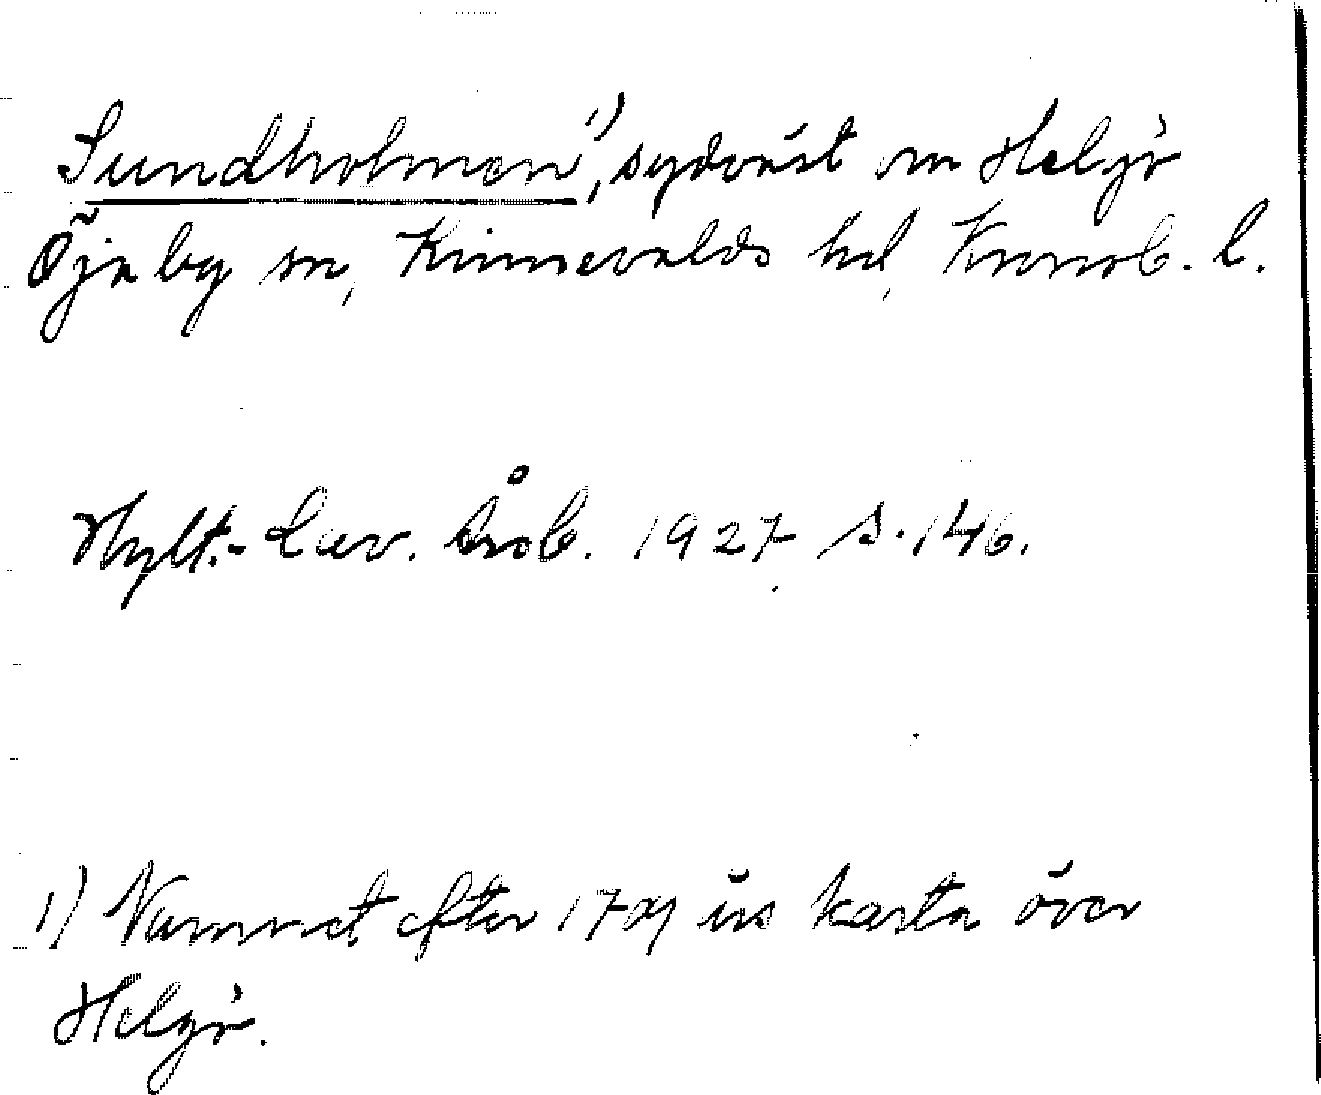 Sundholmen¹⁾, sydväst om Helgö
Öjaby sn, Kinnevalds hd, Kronob. l.
Hylt.-Cav. Årsb. 1927 s. 146.
1) Namnet efter 1709 års karta över
Helgö.